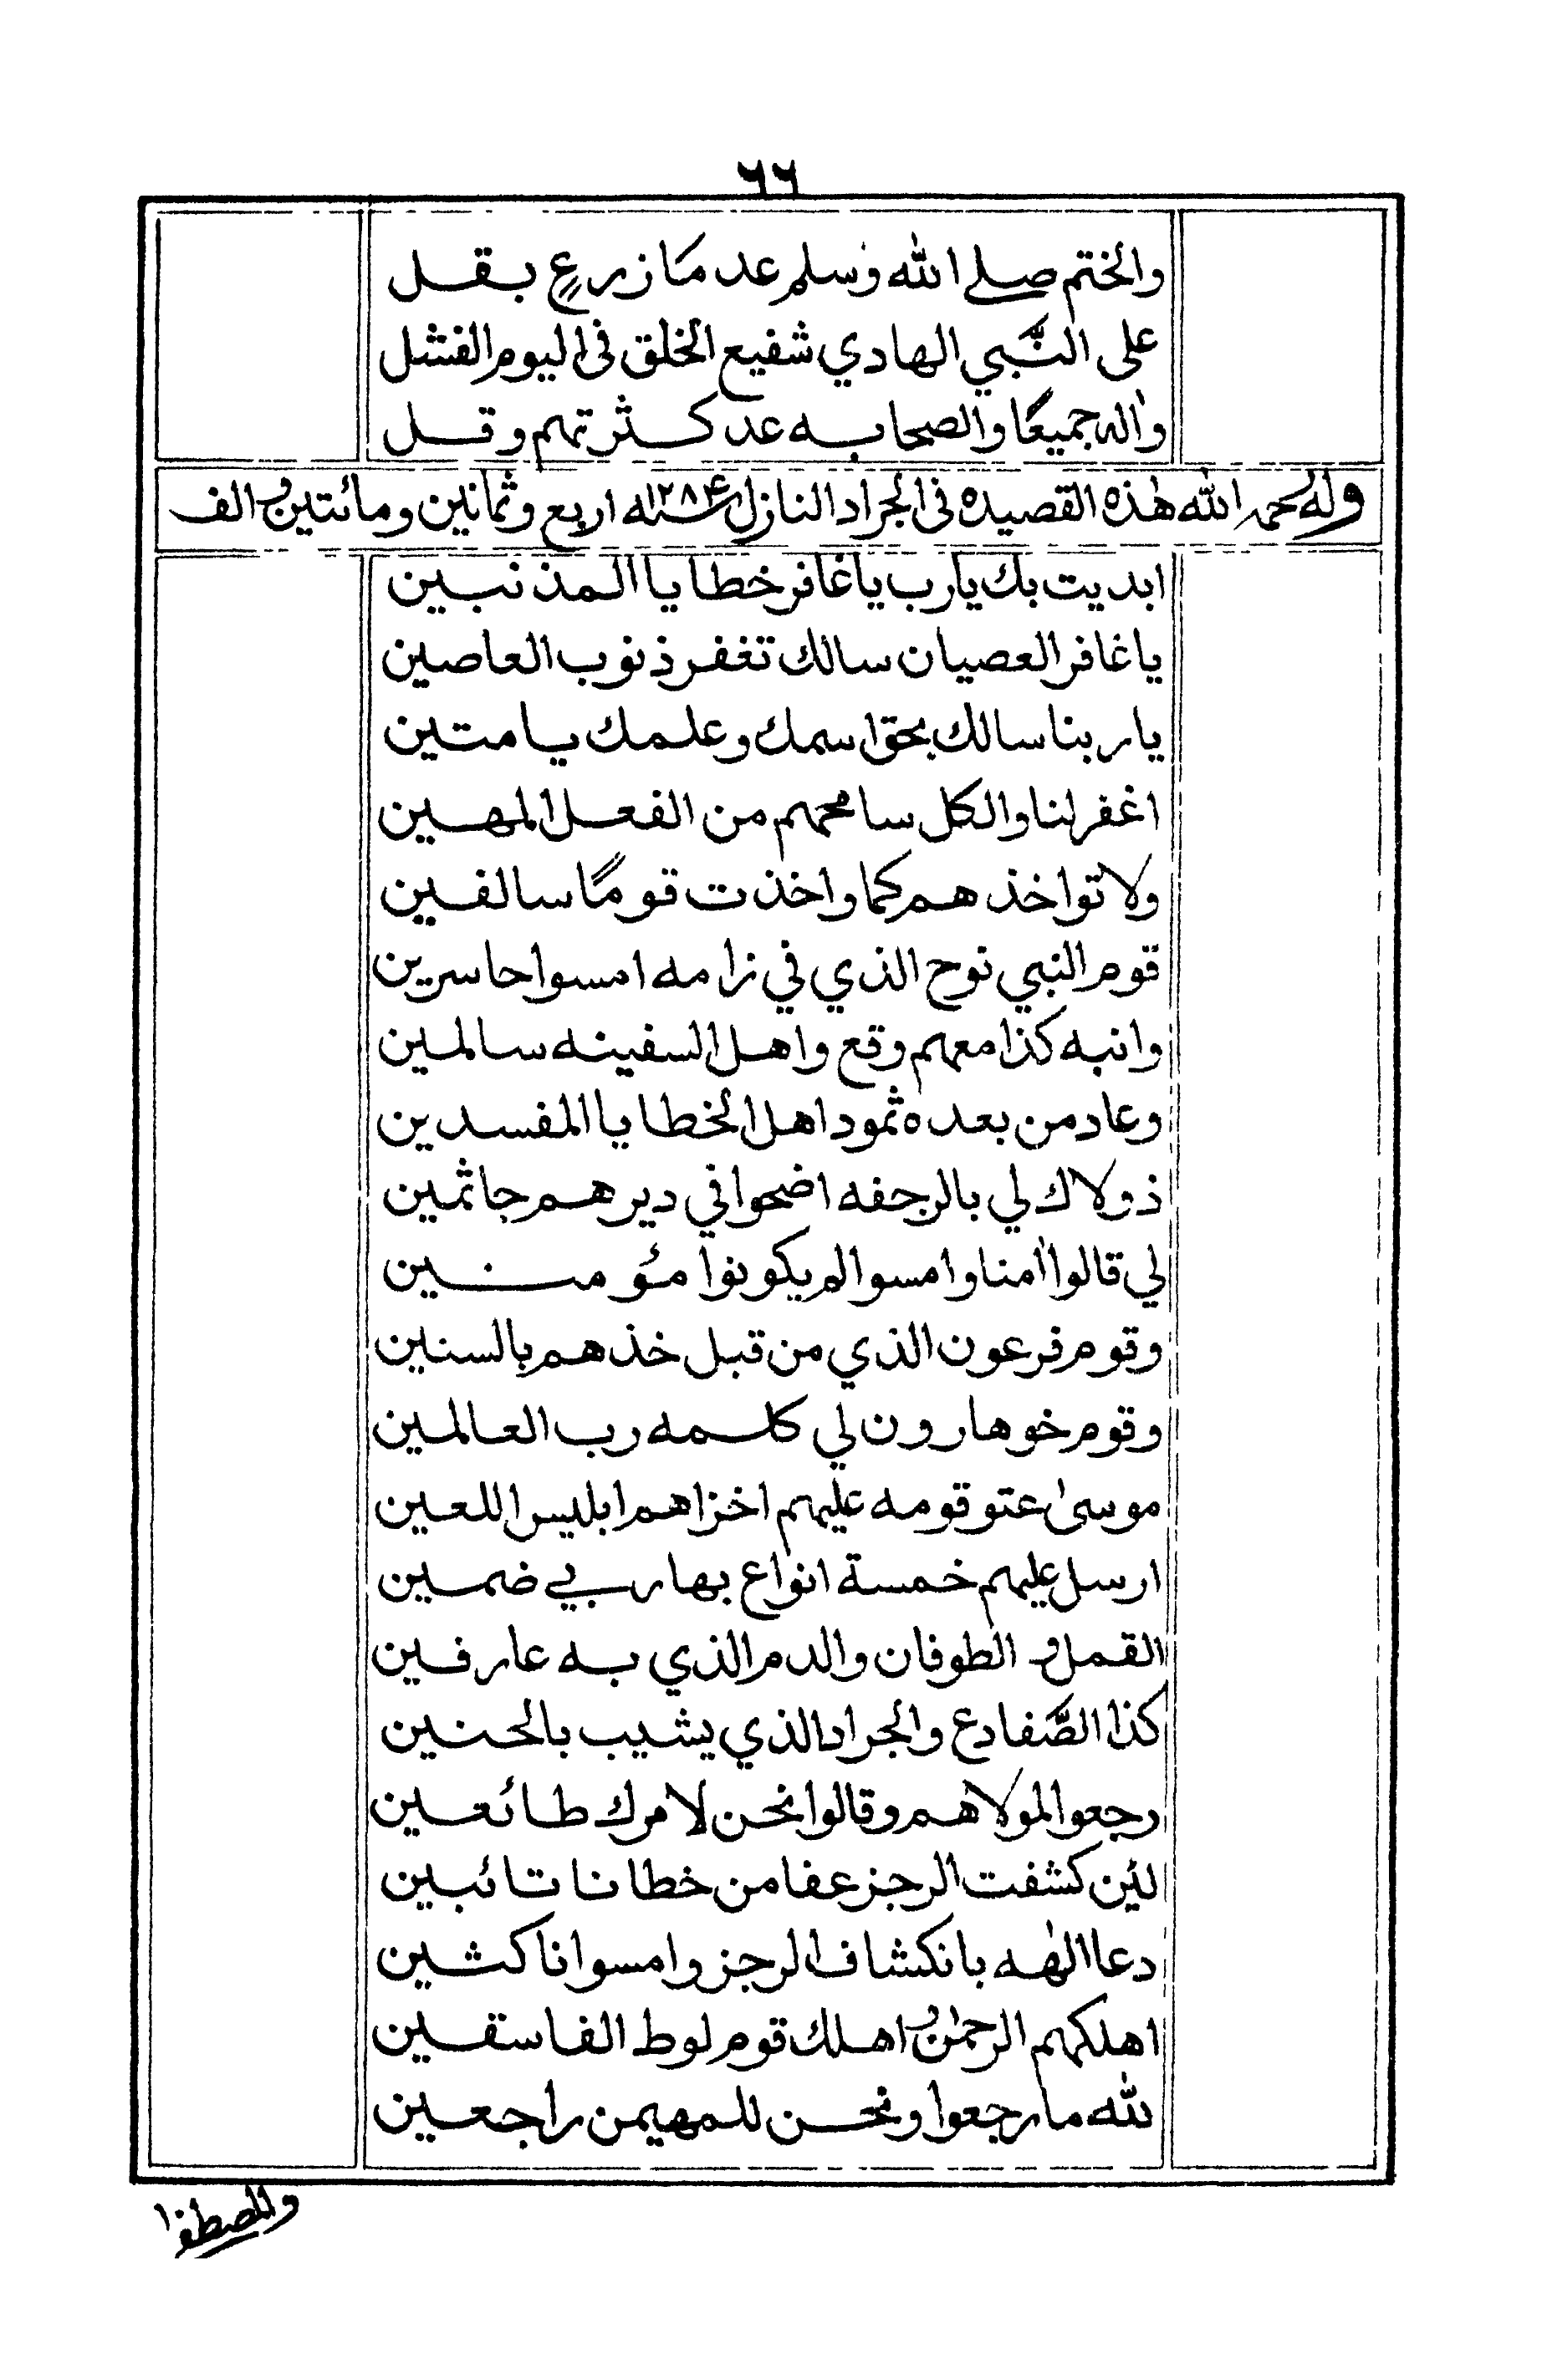 ٦٦
والختم صلى الله وسلم عد ما زرعٍ بقل
على النَّبي الهادي شفيع الخلق في اليوم الفشل
واله جميعًا والصحابه عد كثرتهم وقل
وله رحمه الله هذه القصيده في الجراد النازل سنه ١٢٨٤ اربع وثمانين ومائتين والف
ابديت بك يارب ياغافر خطايا المذنبين
ياغافر العصيان سالك تغفر ذنوب العاصين
ياربنا سالك بحق اسمك وعلمك يامتين
اغفرلنا والكل سامحهم من الفعل المهين
ولاتواخذهم كما واخذت قومًا سالفين
قوم النبي نوح الذي في زامه امسوا حاسرين
وانبه كذا معهم وقع واهل السفينه سالمين
وعاد من بعده ثمود اهل الخطايا المفسدين
ذولاك لي بالرجفه اضحوا في ديرهم جاثمين
لي قالوا امنا وامسوا لم يكونوا مؤمنين
وقوم فرعون الذي من قبل خذهم بالسنين
وقوم خو هارون لي كلمه رب العالمين
موسى عتو قومه عليهم اخزاهم ابليس اللعين
ارسل عليهم خمسة انواع بها ربي ضمين
القمل والطوفان والدم الذي به عارفين
كذا الصَّفادع والجراد الذي يشيب بالحنين
رجعوا لمولاهم وقالوا نحن لامرك طائعين
لئن كشفت الرجز عفا من خطانا تائبين
دعا الهه بانكشاف الرجز وامسوا ناكثين
اهلكهم الرحمن واهلك قوم لوط الفاسقين
لله مارجعوا ونحن للمهيمن راجعين
والمصطفا